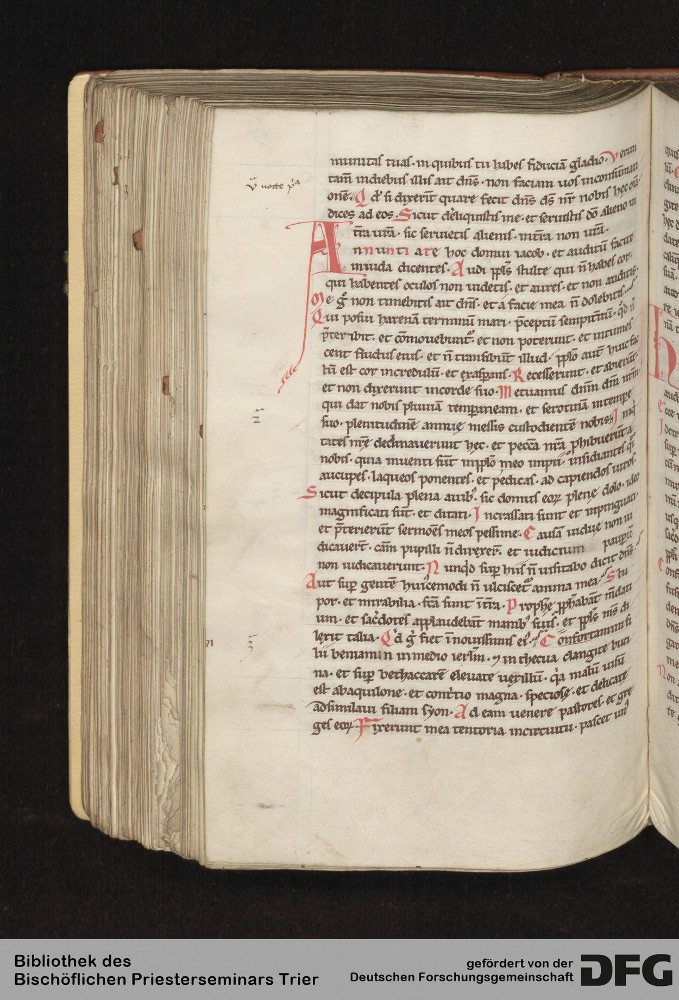 munitas tuas · in quibus tu habes fiduciā gladio · Verun
tam̄ in dieb illis ait dn̄s · non faciam uos in consūmati
onē · Qd' si dixerīt quare fecit dn̄s ds̄ nr̄ nobis hec oīa
dices ad eos · Sicut dereliquistis me · et seruistis dō alieno in
t̄ra ur̄a · sic seruietis alienis · in t̄ra non ur̄a ·
Annunti ate hoc domui iacob · et auditū facite
in iuda dicentes · Audi ppls̄ stulte qui n̄ habes cor
qui habentes oculos non uidetis · et aures · et non auditis ·
Me g̊ non timebitis ait dn̄s · et a facie mea n̄ dolebitis ·
Qui posui harenā terminū mari · p̄ceptū sempit̄nū · qd n̄
p̄teribit · et cōmouebunt᷑ · et non poterunt · et intumes
cent fluctus eius · et n̄ transibunt illud · pplo aut̄ huic fac
tū est cor incredulū · et exaspans · Recesserunt · et abierūt
et non dixerunt in corde suo · Metuamus dnm̄ dm̄ nr̄m
qui dat nobis pluuiā temporaneam · et serotinā in tempe
suo · plenitudinē annue messis custodientē nobis · Iniq
tates nr̄e declinauerunt hec · et pecca nr̄a phibuerūt
nobis · quia inuenti sūt in pplo meo impii · insidiantes qsi
aucupes · laqueos ponentes · et pedicas · ad capiendos uiros ·
Sicut decipula plena auib · sic domus eoꝝ plene dolo · ideo
magnificati sūt · et ditati · Incrassati sunt et inpinguati
et p̄terierūt sermōes meos pessime · Causā uidue non iu
dicauert̄ · cām pupilli n̄ direxer̄ · et iudicium paupm̄
non iudicauerunt · Nunqd sup his n̄ uisitabo dicit dn̄s
Aut sup gentē huicemodi n̄ ulciscet᷑ anima mea · Stu
por · et mirabilia · fc̄a sunt in t̄ra · Prophe pphabāt m̄dati
um · et sac̄dotes applaudebāt manib suis · et ppls̄ ms̄ di
lexit talia · Qd g̊ fiet in nouissimis ei · Confortamini fi
lii beniamin in medio ierlm̄ · ⁊ in thecua clangite buci
na · et sup bethaccarē eleuate uexillū · qa malū uisū
est ab aquilone · et cont̄tio magna · speciose · et delicate
adsimilaui filiam syon · Ad eam uenere pastores · et gre
ges eoꝝ · Fixerunt mea tentoria in circuitu · pascet un
Bibliothek des
Bischöflichen Priesterseminars Trier
gefördert von der
Deutschen Forschungsgemeinschaft
DFG